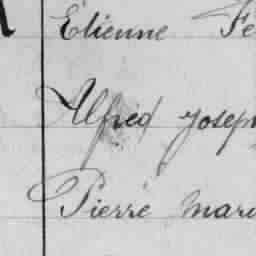 Etienne Fe
Alfred Joseph
Pierre Mari